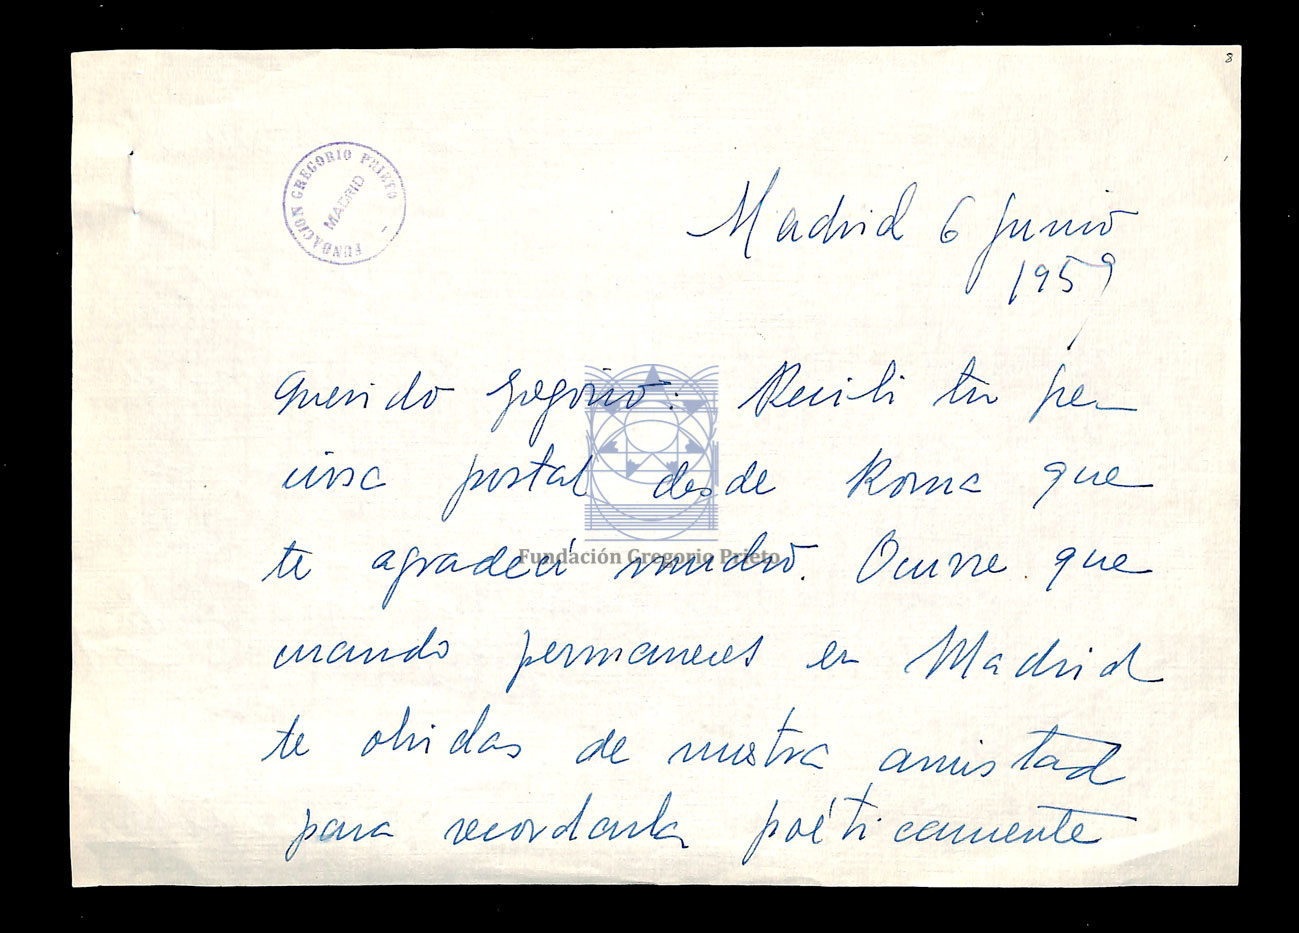 8
FUNDACION GREGORIO PRIETO - MADRID
Madrid 6 Junio
1959
Querido Gregorio: Recibí tu pre
ciosa postal desde Roma que
te agradecí mucho. Ocurre que
cuando permaneces en Madrid
te olvidas de nuestra amistad
para recordarla poéticamente
Fundación Gregorio Prieto